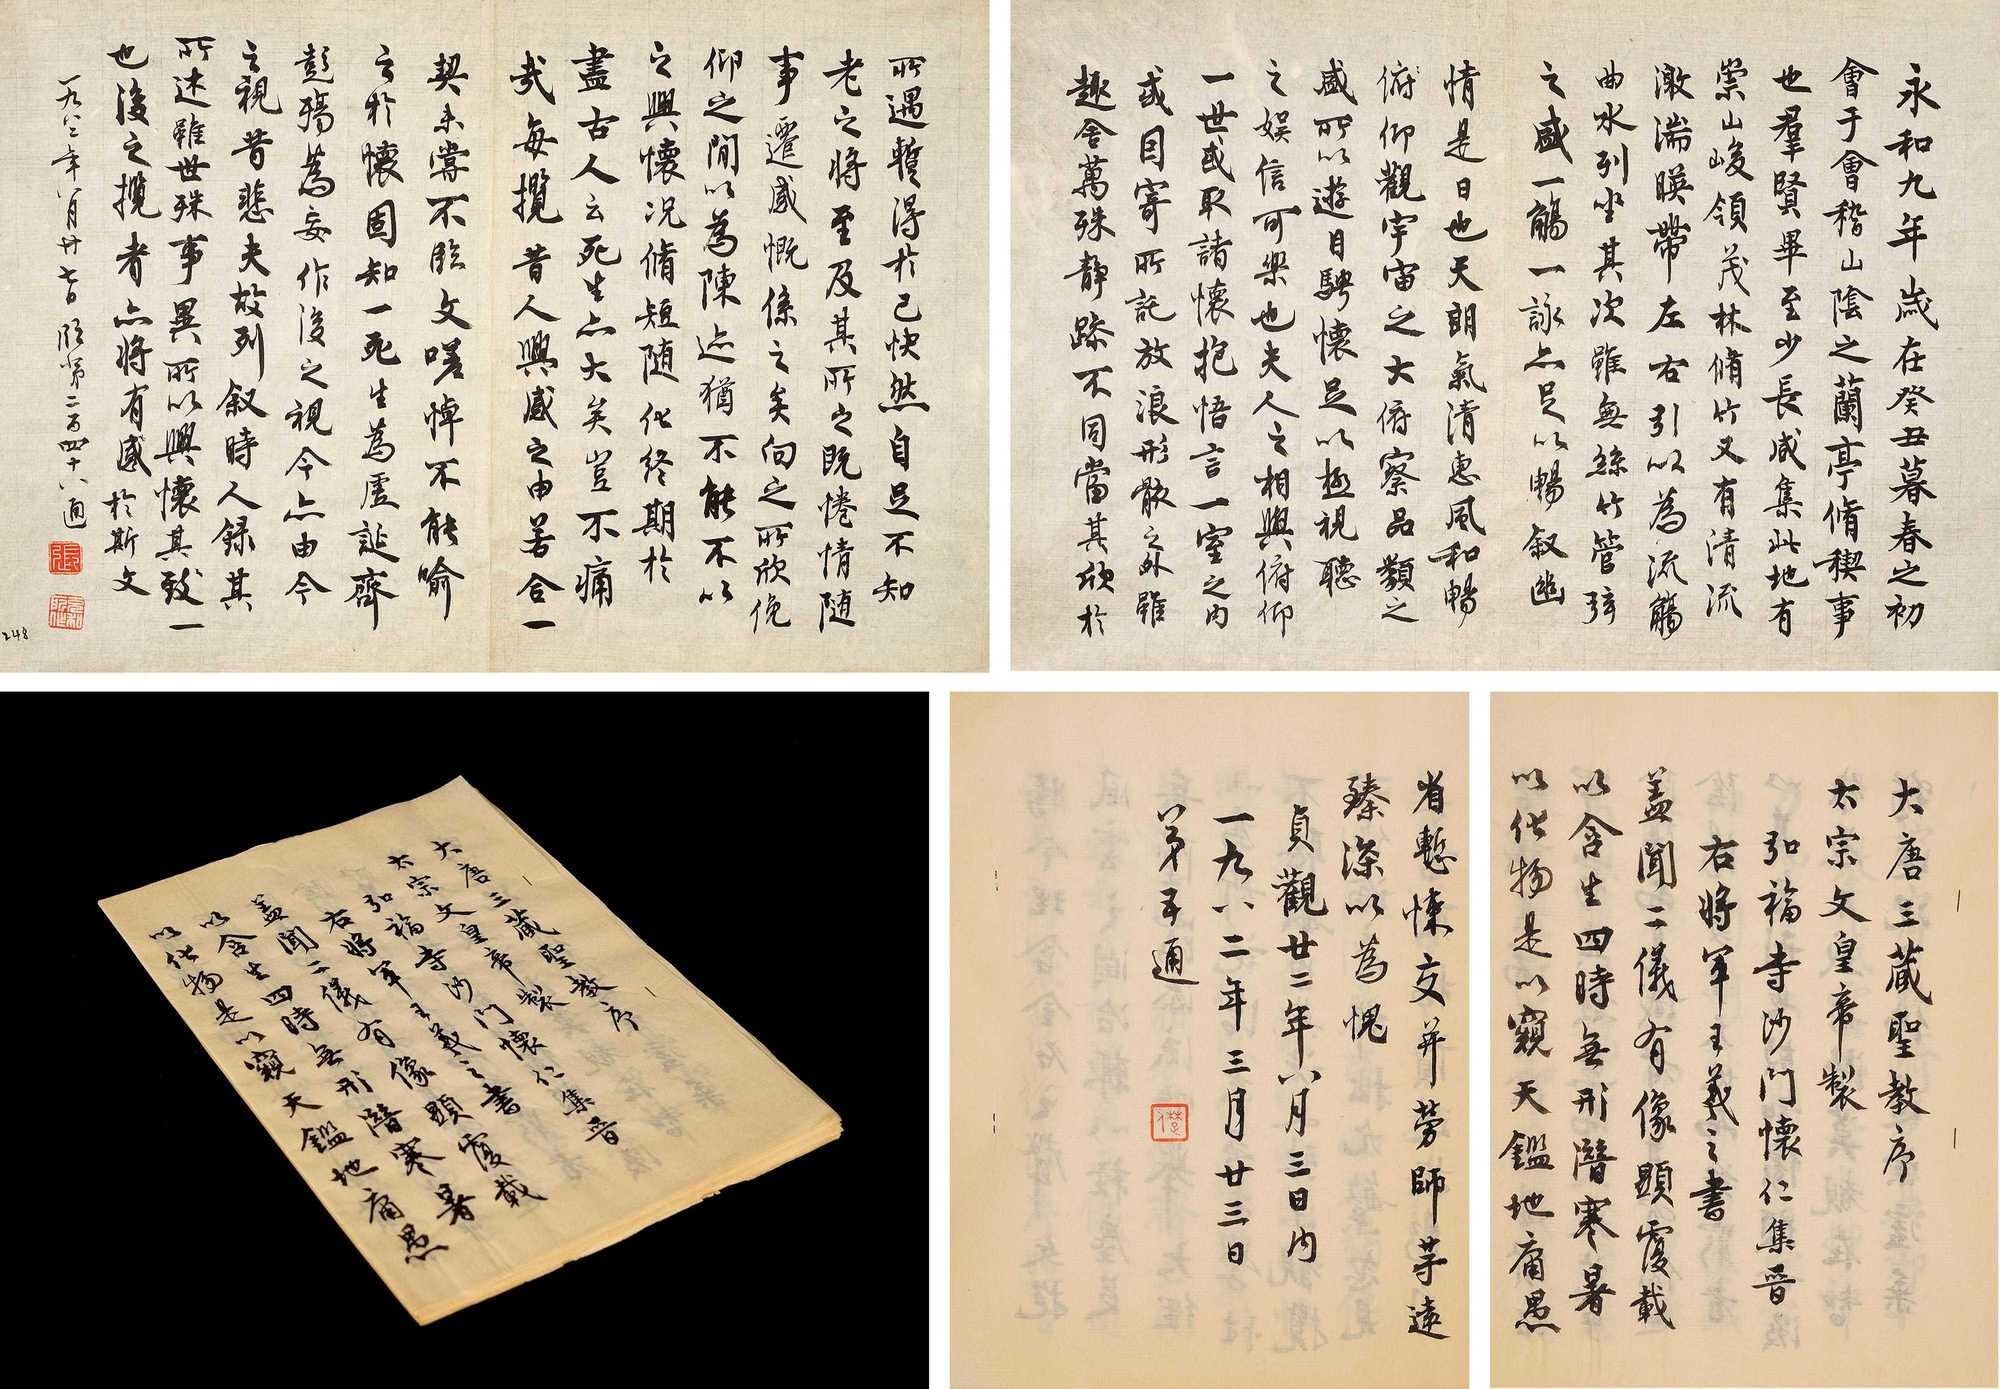 永和九年歲在癸丑暮春之初
會于會稽山陰之蘭亭脩稧事
也羣賢畢至少長咸集此地有
崇山峻領茂林脩竹又有清流
激湍暎帶左右引以為流觴
曲水列坐其次雖無絲竹管弦
之盛一觴一詠亦足以暢叙幽
情是日也天朗氣清惠風和暢
俯仰觀宇宙之大俯察品類之
盛所以遊目騁懷足以極視聽
之娛信可樂也夫人之相與俯仰
一世或取諸懷抱悟言一室之內
或因寄所託放浪形骸之外雖
趣舍萬殊靜躁不同當其欣於
所遇蹔得於己快然自足不知
老之將至及其所之既惓情隨
事遷感慨係之矣向之所欣俛
仰之閒以為陳迹猶不能不以
之興懷況脩短隨化終期於
盡古人云死生亦大矣豈不痛
哉每攬昔人興感之由若合一
契未嘗不臨文嗟悼不能喻
之於懷固知一死生為虛誕齊
彭殤為妄作後之視今亦由今
之視昔悲夫故列叙時人錄其
所述雖世殊事異所以興懷其致一
也後之攬者亦將有感於斯文
一九八三年八月廿七日臨第二百四十八通
張
248
大唐三藏聖教序
太宗文皇帝製
弘福寺沙門懷仁集晉
右將軍王羲之書
蓋聞二儀有像顯覆載
以含生四時無形潛寒暑
以化物是以窺天鑑地庸愚
省慙悚交并勞師等遠
臻深以為愧
貞觀廿二年八月三日內
一九八二年三月廿三日
第五通
大唐三藏聖教序
太宗文皇帝製
弘福寺沙門懷仁集晉
右將軍王羲之書
蓋聞二儀有像顯覆載
以含生四時無形潛寒暑
以化物是以窺天鑑地庸愚